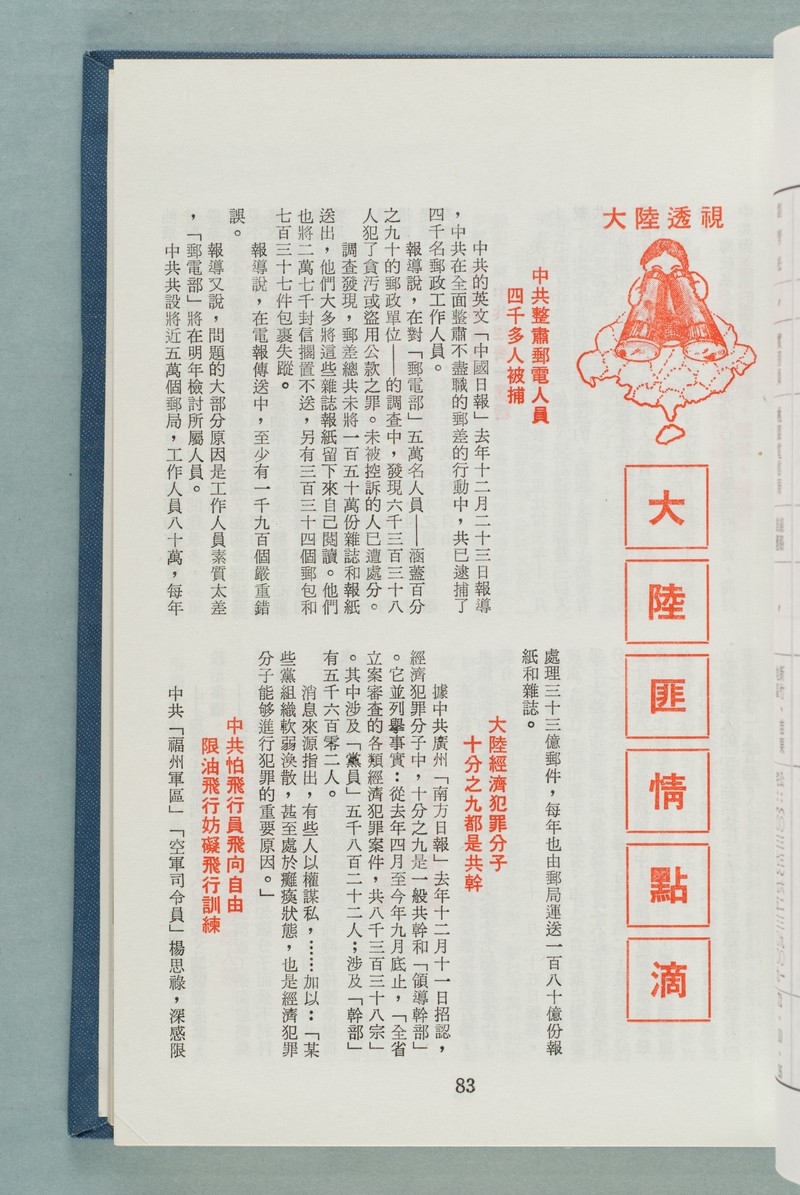 大陸透視
大陸匪情點滴
中共整肅郵電人員
四千多人被捕
中共的英文「中國日報」去年十二月二十三日報導
，中共在全面整肅不盡職的郵差的行動中，共已逮捕了
四千名郵政工作人員。
報導說，在對「郵電部」五萬名人員——涵蓋百分
之九十的郵政單位——的調查中，發現六千三百三十八
人犯了貪汚或盜用公款之罪。未被控訴的人已遭處分。
調查發現，郵差總共未將一百五十萬份雜誌和報紙
送出，他們大多將這些雜誌報紙留下來自己閱讀。他們
也將二萬七千封信擱置不送，另有三百三十四個郵包和
七百三十七件包裹失蹤。
報導說，在電報傳送中，至少有一千九百個嚴重錯
誤。
報導又說，問題的大部分原因是工作人員素質太差
，「郵電部」將在明年檢討所屬人員。
中共共設將近五萬個郵局，工作人員八十萬，每年
處理三十三億郵件，每年也由郵局運送一百八十億份報
紙和雜誌。
大陸經濟犯罪分子
十分之九都是共幹
據中共廣州「南方日報」去年十二月十一日招認，
經濟犯罪分子中，十分之九是一般共幹和「領導幹部」
。它並列舉事實：從去年四月至今年九月底止，「全省
立案審查的各類經濟犯罪案件，共八千三百三十八宗」
。其中涉及「黨員」五千八百二十二人；涉及「幹部」
有五千六百零二人。
消息來源指出，有些人以權謀私，……加以：「某
些黨組織軟弱渙散，甚至處於癱瘓狀態，也是經濟犯罪
分子能够進行犯罪的重要原因。」
中共怕飛行員飛向自由
限油飛行妨礙飛行訓練
中共「福州軍區」「空軍司令員」楊思祿，深感限
83